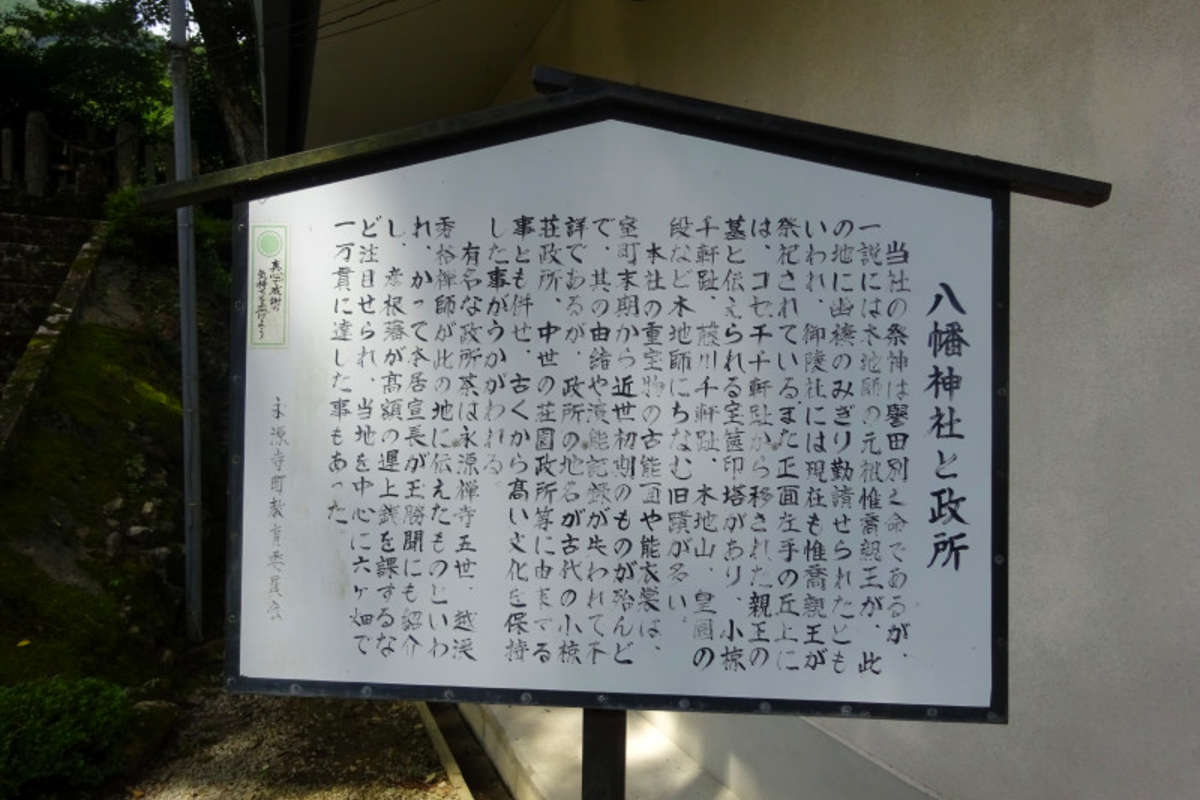 八幡神社と政所
当社の祭神は譽田別之命であるが、
一説には木地師の元祖惟喬親王が、此
の地に幽棲のみぎり勤請せられたとも
いわれ、御陵社には現在も惟喬親王が
祭祀されている。また正面左手の丘上に
は、コセ千千軒趾から移された親王の
墓と伝えられる宝篋印塔があり、小椋
千軒趾、藤川千軒趾、木地山、皇園の
段など木地師にちなむ旧蹟が多い。
本社の重宝物の古能面や能衣裳は、
室町末期から近世初期のものが殆んど
で、其の由緒や演能記録が失われて不
詳であるが、政所の地名が古代の小椋
荘政所、中世の荘園政所等に由来する
事とも併せ、古くから高い文化を保持
した事がうかがわれる。
有名な政所茶は永源禅寺五世、越渓
秀格禅師が此の地に伝えたものといわ
れ、かって本居宣長が玉勝間にも紹介
し、彦根藩が高額の運上銭を課するな
ど注目せられ、当地を中心に六ヶ畑で
一万貫に達した事もあった。
永源寺町教育委員会
真心で感謝の